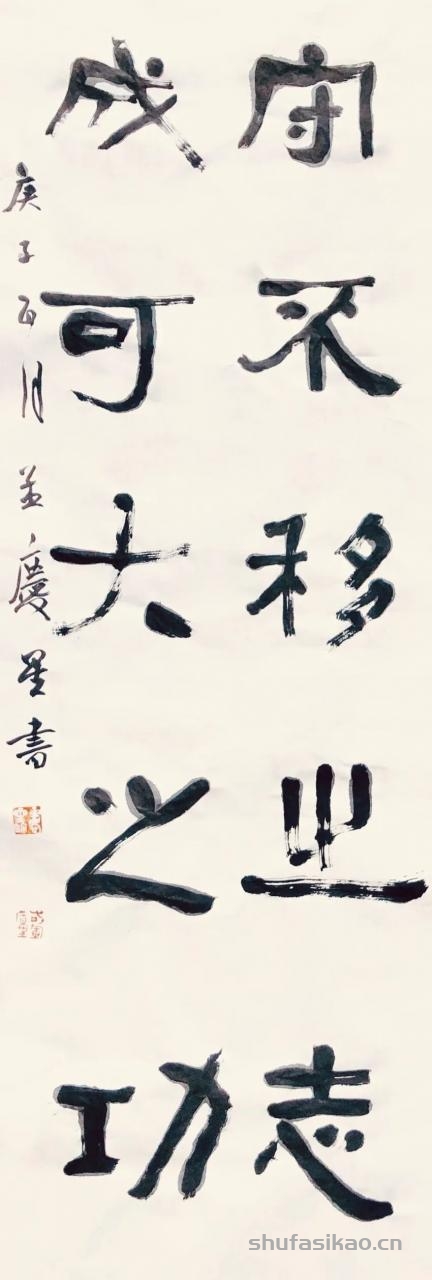 守不移之志
成可大之功
庚子百月 孟慶星書
shufasikao.cn